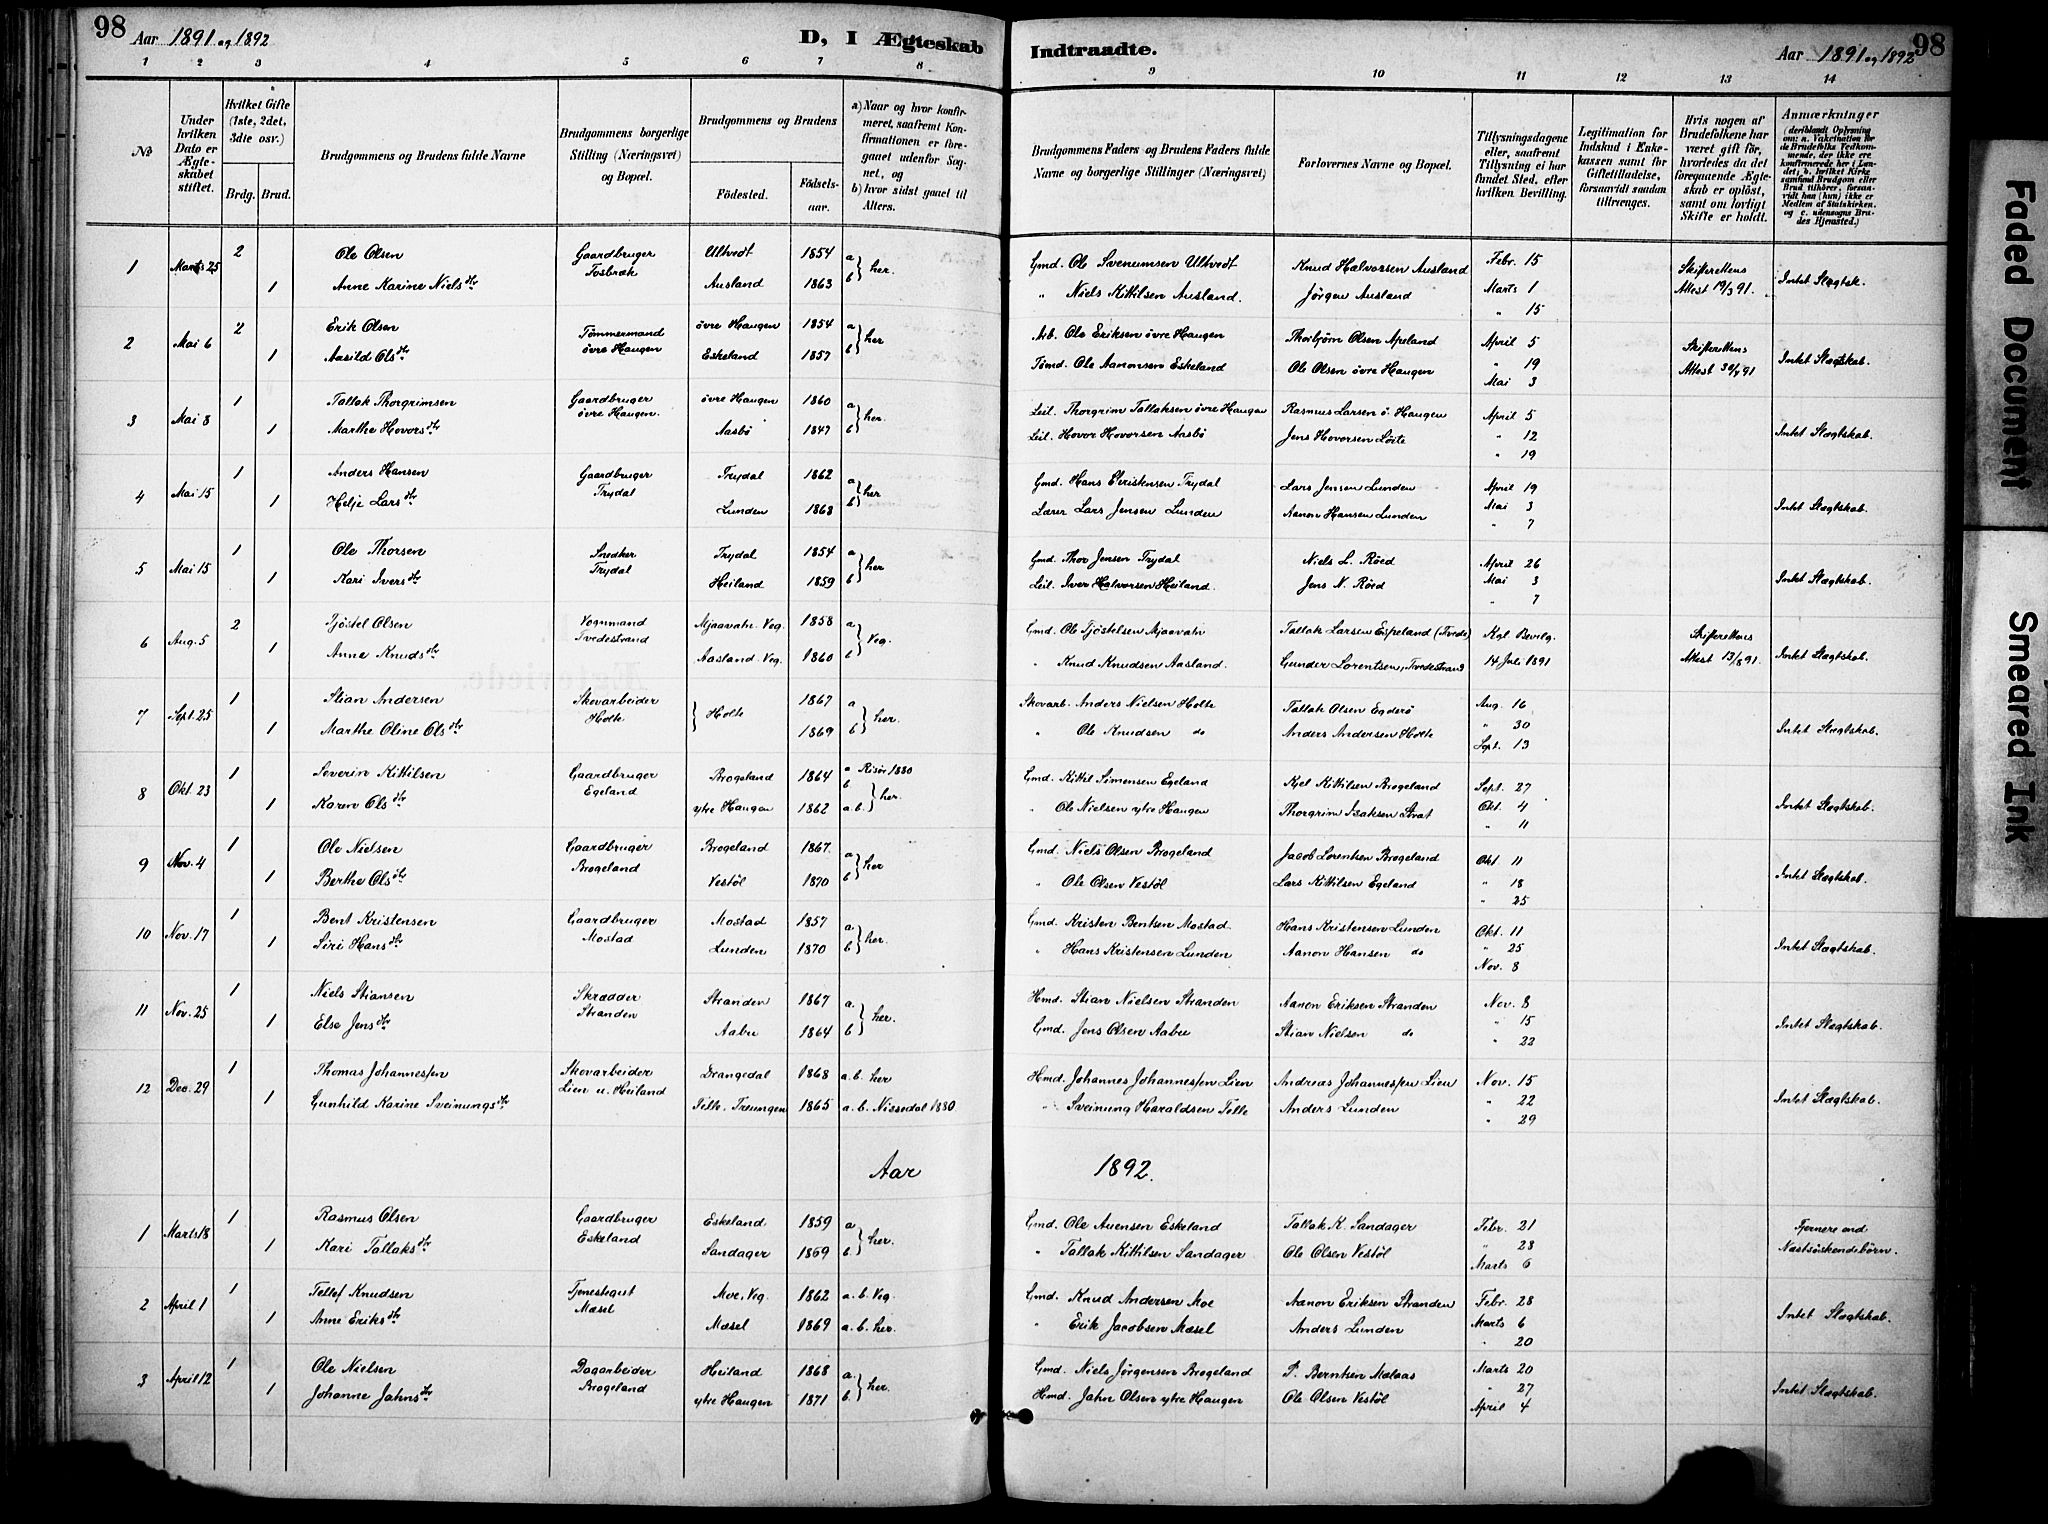 98 Aar 1891 og 1892 D, I Ægteskab Indtraadte. Aar 1891 og 1892 98
1 2 3 4 5 6 7 8 9 10 11 12 13 14
№
Under hvilken Dato er Ægteskabet stiftet.
Hvilket Gifte (1ste, 2det, 3die osv.)
Brdg. Brud.
Brudgommens og Brudens fulde Navne
Brudgommens borgerlige Stilling (Næringsvei) og Bopæl.
Brudgommens og Brudens
Fødested. Fødselsaar.
a) Naar og hvor konfirmeret, saafremt Konfirmationen er foregaaet udenfor Sognet, og
b) hvor sidst gaaet til Alters.
Brudgommens Faders og Brudens Faders fulde Navne og borgerlige Stillinger (Næringsvei)
Forlovernes Navne og Bopæl.
Tillysningsdagene eller, saafremt Tillysning ei har fundet Sted, efter hvilken Bevilling.
Legitimation for Indskud i Enkekassen samt for Giftetilladelse, forsaavidt saadan tiltrænges.
Hvis nogen af Brudefolkene har været gift før, hvorledes da det foregaaende Ægteskab er opløst, samt om lovligt Skifte er holdt.
Anmærkninger
(deriblandt Oplysning om: a. Vakcination for de Brudefolks Vedkommende, der ikke ere konfirmerede her i Landet; b. hvilket Kirkesamfund Brudgom eller Brud tilhører, forsavidt han (hun) ikke er Medlem af Statskirken, og c. udensogns Brudes Hjemsted.)
1 Marts 25 2 Ole Olsen Gaardbruger Ultvedt 1854 a Gmd. Ole Svenumsen Ultvedt Knud Halvorsen Ausland Febr. 15 Skifterettens
1 Anne Karine Nielsdtr Fosbræk Ausland 1863 b her. " Niels Kittilsen Ausland. Jörgen Ausland Marts 1 Attest 19/3 91. Intet Slægtsk.
" 15
2 Mai 6 2 Erik Olsen Tömmermand övre Haugen 1854 a Arb. Ole Eriksen övre Haugen Thorbjörn Olsen Apeland April 5 Skifterettens
1 Aasild Olsdtr övre Haugen Eskeland 1857 b her Tömd. Ole Aanonsen Eskeland Ole Olsen övre Haugen " 19 Attest 30/4 91 Intet Slægtskab.
Mai 3
3 Mai 8 1 Tallak Thorgrimsen Gaardbruger övre Haugen 1860 a Leil. Thorgrim Tallaksen övre Haugen Rasmus Larsen ö. Haugen April 5
1 Marthe Hovorsdtr övre Haugen. Aasbö 1847 b her. Leil. Hovor Hovorsen Aasbö Jens Hovorsen Lörte " 12 Intet Slægtskab.
" 19
4 Mai 15 1 Anders Hansen Gaardbruger Trydal 1862 a Gmd. Hans Eeristensen Trydal Lars Jensen Lunden April 19
1 Helje Larsdtr Trydal Lunden 1868 b her Lærer Lars Jensen Lunden Aanon Hansen Lunden Mai 3 Intet Slægtskab.
" 7
5 Mai 15 1 Ole Thorsen Snedker Trydal 1854 a Gmd. Thor Jensen Trydal Niels L. Röed April 26
1 Kari Iversdtr Trydal Heiland 1859 b her Leil. Iver Halvorsen Heiland. Jens N. Röed Mai 3 Intet Slægtskab.
" 7
6 Aug. 5 2 Tjöstel Olsen Vognmand Mjaavatn. Veg. 1858 a Gmd. Ole Tjöstelsen Mjaavatn Tallak Larsen Espeland (Tvede) Kgl. Bevilg. Skifterettens
1 Anne Knudsdtr Tvedestrand Aasland. Veg. 1860 b Veg. " Knud Knudsen Aasland. Gunder Lorentsen, Tvedestrand 14 Juli 1891 Attest 13/8 91. Intet Slægtskab.
7 Sept. 25 1 Stian Andersen Skovarbeider 1867 a Skovarb. Anders Nielsen Holte Tallak Olsen Egderö Aug. 16
1 Marthe Oline Olsdtr Holte Holte 1869 b her. " Ole Knudsen do Anders Andersen Holte " 30 Intet Slægtskab.
Sept. 13
8 Okt. 23 1 Severin Kittilsen Gaardbruger Brogeland 1864 a Risör 1880 Gmd. Kittil Simensen Egeland Kjel Kittilsen Brogeland Sept. 27
1 Karen Olsdtr Egeland ytre Haugen 1862 b a.b. her. " Ole Nielsen ytre Haugen Thorgrim Isaksen Strat Okt. 4 Intet Slægtskab.
" 11
9 Nov. 4 1 Ole Nielsen Gaardbruger Brogeland 1867. a Gmd. Niels Olsen Brogeland Jacob Lorentsen Brogeland Okt. 11
1 Berthe Olsdtr Brogeland Vestöl 1870 b her " Ole Olsen Vestöl Lars Kittilsen Egeland " 18 Intet Slægtskab.
" 25
10 Nov. 17 1 Bent Kristensen Gaardbruger Mostad 1857 a Gmd. Kristen Bentsen Mostad. Hans Kristensen Lunden Okt. 11
1 Siri Hansdtr Mostad Lunden 1870 b her. " Hans Kristensen Lunden Aanon Hansen do " 25 Intet Slægtskab.
Nov. 8
11 Nov. 25 1 Niels Stiansen Skrædder Stranden 1867 a. Hmd. Stian Nielsen Stranden Aanon Eriksen Stranden Nov. 8
1 Else Jensdtr Stranden Aabu 1864 b her. Gmd. Jens Olsen Aabu Stian Nielsen do " 15 Intet Slægtskab.
" 22
12 Dec. 29 1 Thomas Johannessen Skovarbeider Drangedal 1868 a.b. her Hmd. Johannes Johannessen Lien Andreas Johannessen Lien Nov. 15
1 Gunhild Karine Sveinungsdtr Lien u. Heiland Felle. Treungen 1865 a.b. Nissedal 1880. " Sveinung Haraldsen Felle Anders Lunden " 22 Intet Slægtskab.
" 29
Aar 1892.
1 Marts 18 1 Rasmus Olsen Gaardbruger Eskeland 1859 a Gmd. Ole Auensen Eskeland Tallak K. Sandager Febr. 21 Fjernere end
1 Kari Tallaksdtr Eskeland Sandager 1869 b her. " Tallak Kittilsen Sandager Ole Olsen Vestöl " 28 Næstsöskendebörn.
Marts 6
2 April 1 1 Tellef Knudsen Tjenestegut Moe, Veg. 1862 a.b. Veg. Gmd. Knud Andersen Moe Aanon Eriksen Stranden Febr. 28
1 Anne Eriksdtr Mæsel Mæsel 1869 a.b. her. " Erik Jacobsen Mæsel Anders Lunden Marts 6 Intet Slægtskab.
" 20
3 April 12 1 Ole Nielsen Dagarbeider Heiland 1868 a Gmd. Niels Jörgensen Brogeland P. Berntsen Mælaas Marts 20
1 Johanne Jahnsdtr Brogeland ytre Haugen 1871 b. her. Hmd. Jahn Olsen ytre Haugen Ole Olsen Vestöl " 27 Intet Slægtskab.
April 4
Faded Document
Smeared Ink